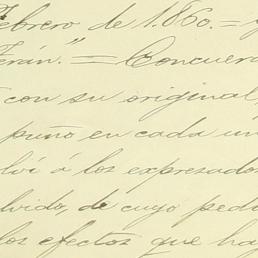 Febrero de 1.860.=
Terán."= Concuerd
con su original,
puño en cada un
lví á los expresados
lvido, de cuyo pedi
los efectos que hay